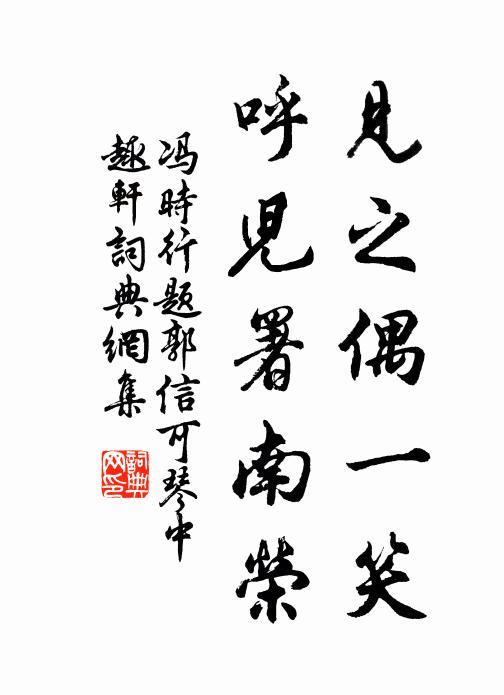 見之偶一笑
呼児署南榮
冯時行题郭信可琴中
趣軒詞典網集
詞典網印